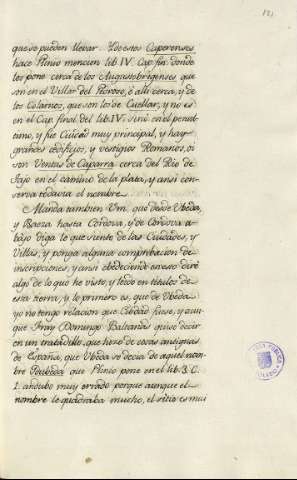 121
que se pueden llevar. De estos Caperenses
hace Plinio mencion lib. IV. Cap. fin. donde
los pone cerca de los Augustobrigenses, que
son en el Villar del Pedroso, ó alli cerca, y de
los Colarnos, que son los de Cuellar, y no es
en el Cap. final del lib. IV. sinó en el penul-
timo, y fue Ciudad muy principal, y hay
grandes edificios, y vestigios Romanos, oi
son Ventas de Caparra cerca del Rio de
Tajo en el camino de la plata, y ansi con-
serva todavia el nombre.
Manda tambien Vm. que desde Ubeda,
y Baeza hasta Cordova, y de Cordova a-
bajo diga lo que siente de las Ciudades, y
Villas, y ponga alguna comprobacion de
inscripciones, y ansi obedeciendo a eso diré
algo de lo que he visto, y leido en titulos de
esta tierra, y lo primero es, que de Ubeda
yo no tengo relacion que Ciudad fuese, y aun-
que Fray Domingo Baltanás quiso decir
en un tratadillo, que hizo de cosas antiguas
de España, que Ubeda se decia de aquel nom-
bre que Plinio pone en el lib. 3. C.
1. anduvo muy errado porque aunque el
nombre le quadraba mucho, el sitio es mui